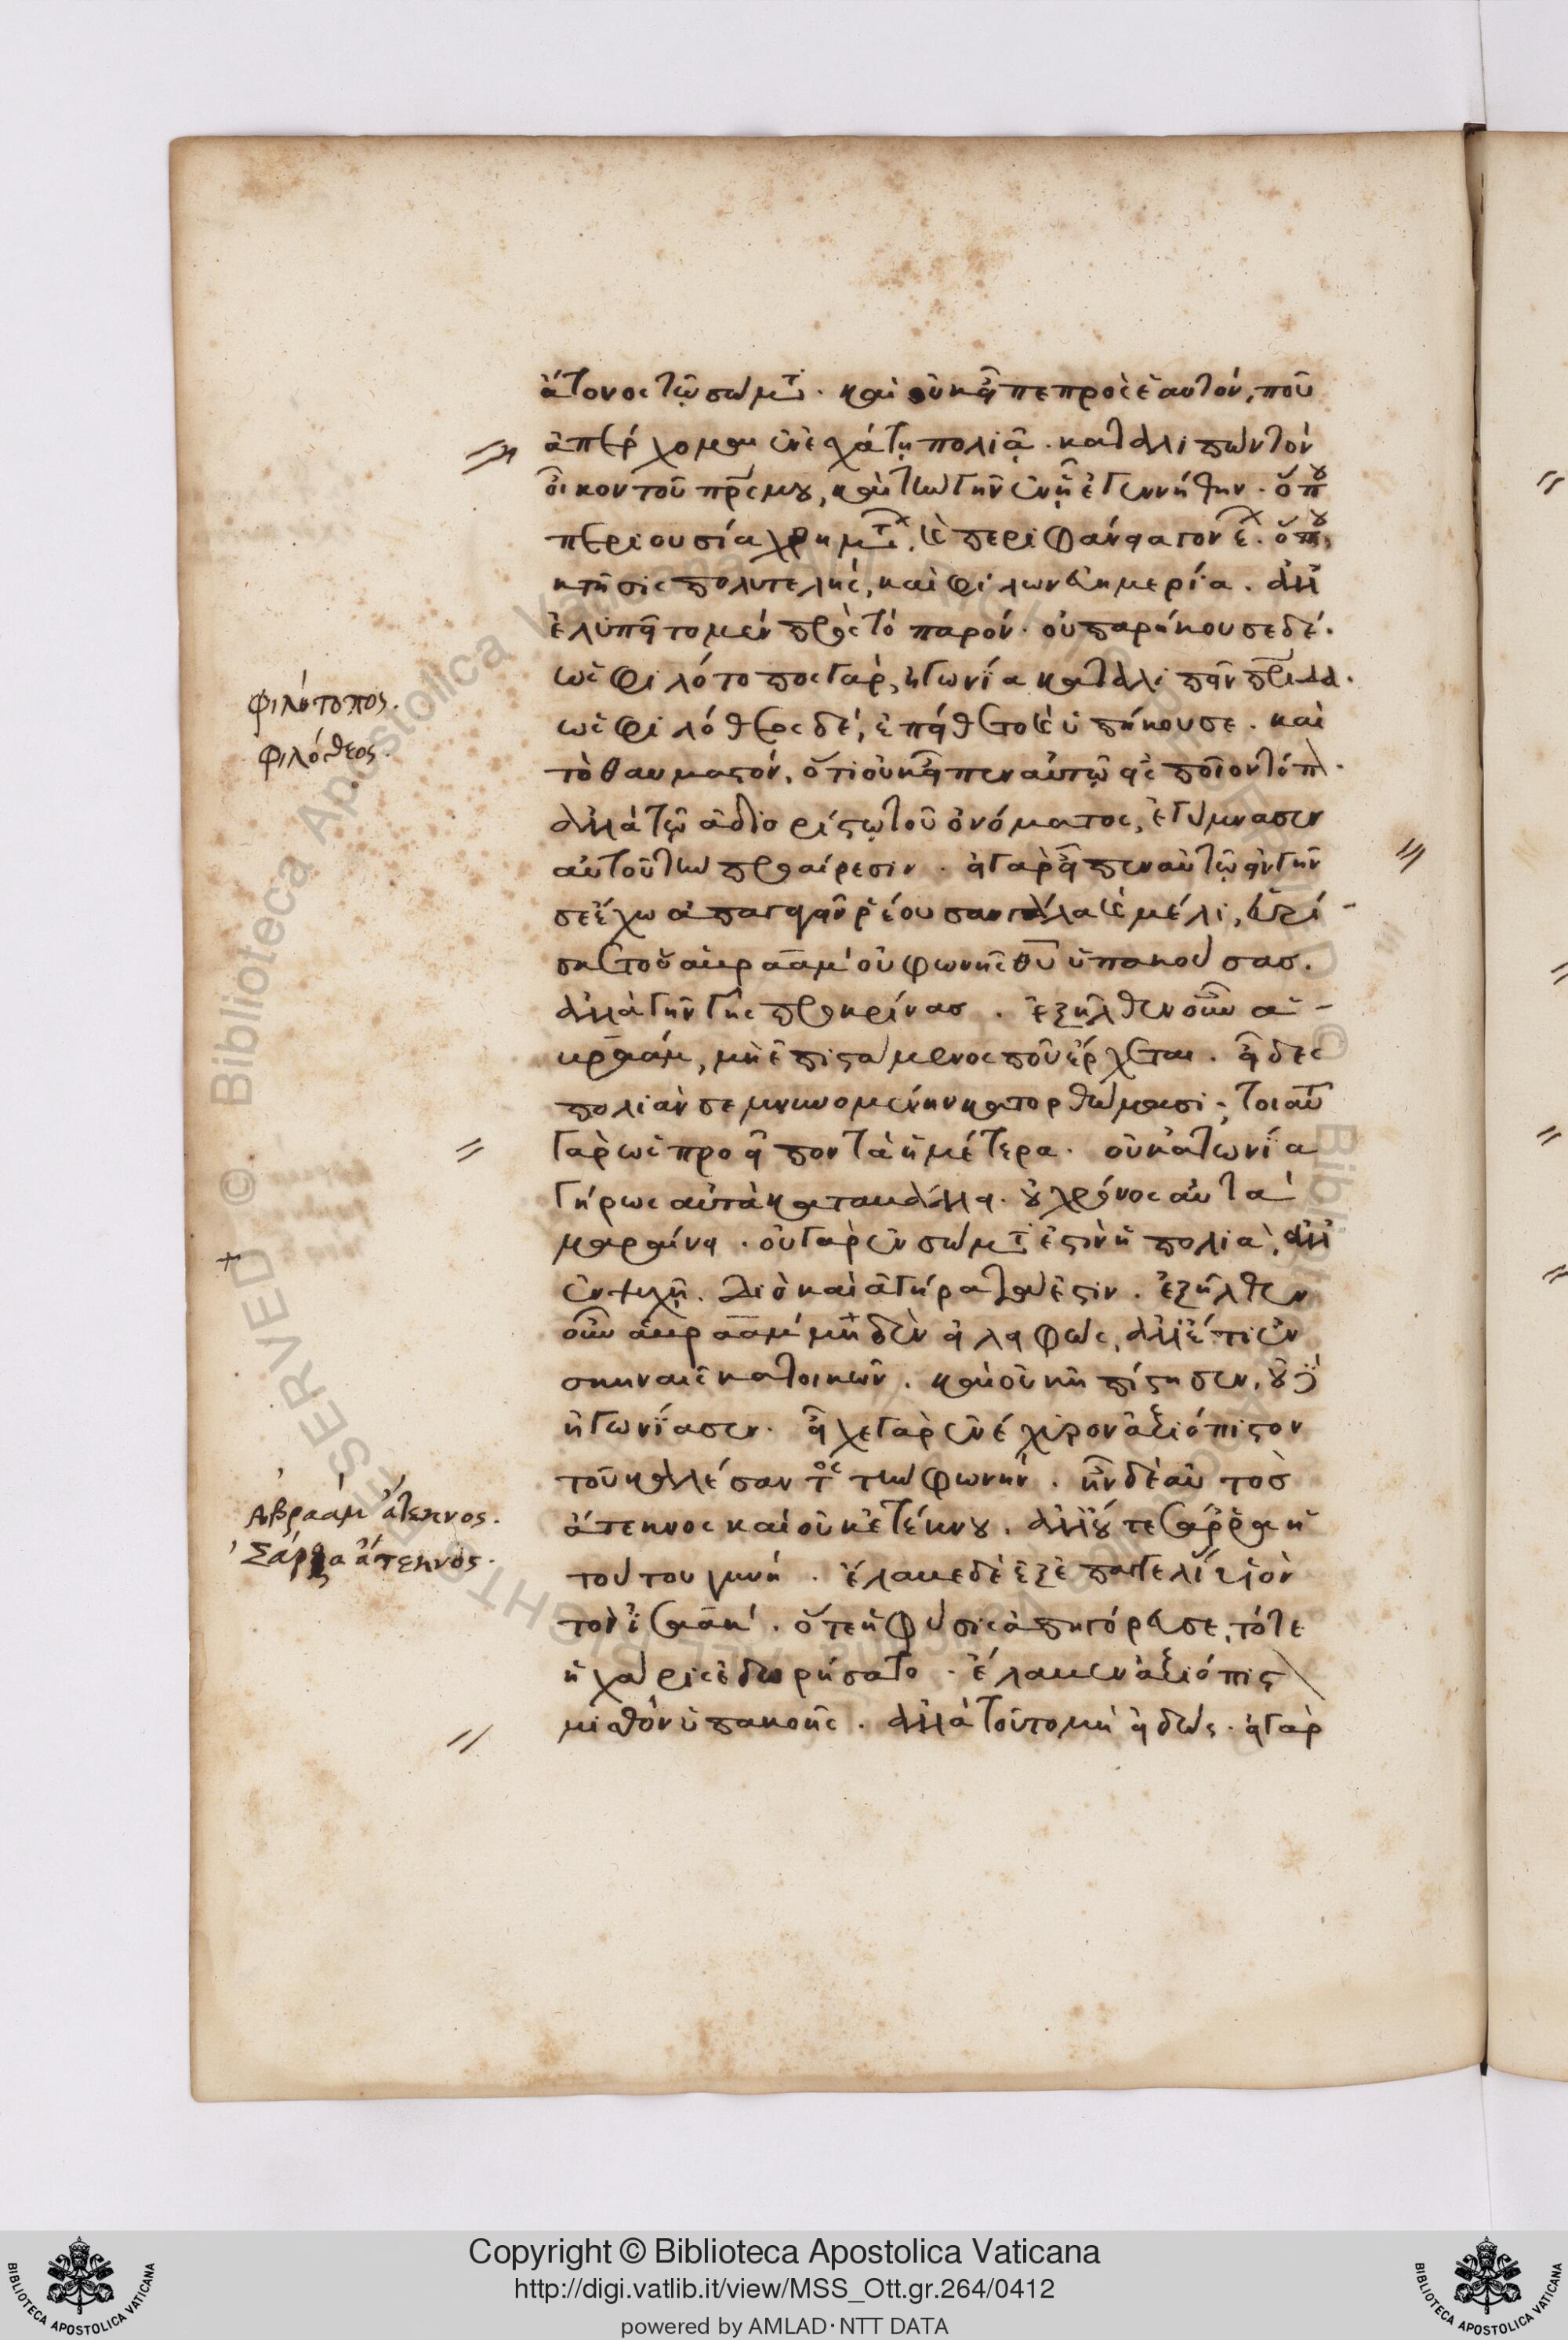 ἄτονος τῷ σώμτι. καὶ οὐκ εἶπε πρὸς ἑαυτόν, ποῦ
ἀπέρχομαι ἐν ἐσχάτῃ πολιᾷ. καταλιπὼν τὸν
οἶκον τοῦ πρς μου, καὶ τὴν γῆν ἐν ᾗ ἐγεννήθην. ὅπου
περιουσία χρημάτ, καὶ περιφάνεια γονέ. ὅπου
κτῆσις πολυτελής, καὶ φίλων εὐημερία. ἀλλ
ἐλυπεῖτο μὲν πρὸς τὸ παρόν. οὐ παρήκουσε δέ.
ὡς φιλότοπος γὰρ, ἠγωνία καταλιπεῖν πρίδα.
ὡς φιλόθεος δέ, ἐπείθετο καὶ ὑπήκουσε. καὶ
τὸ θαυμαστόν, ὅτι οὐκ εἶπεν αὐτῷ εἰς ποῖον τόπ.
ἀλλὰ τῷ ἀδιορίστῳ τοῦ ὀνόματος, ἐγύμνασεν
αὐτοῦ τὴν προαίρεσιν. εἰ γὰρ εἶπεν αὐτῷ εἰς γῆν
σε ἔχω ἀπαγαγεῖν ῥέουσαν γάλα καὶ μέλι, εὑρί-
σκετο ὁ ἀβραὰμ οὐ φωνῆς θυ ὑπακούσας.
ἀλλὰ γῆν γῆς προκρίνας. ἐξῆλθεν οὖν ἀ-
βραάμ, μὴ ἐπιστάμενος ποῦ ἔρχεται. εἶδες
πολιὰν σεμνυνομένην κατορθώμασι. τοιαῦ
γὰρ ὡς προεῖπον τὰ ἡμέτερα. οὐκ ἀγωνία
γήρως αὐτὰ καταβάλλει. οὐ χρόνος αὐτὰ
μαραίνει. οὐ γὰρ ἐν σώμτι ἐστὶν ἡ πολιὰ, ἀλλ
ἐν ψυχῇ. διὸ καὶ ἀγήρατός ἐστιν. ἐξῆλθεν
οὖν ἀβραὰμ μηδὲν εἰληφώς, ἀλλ ἔτι ἐν
σκηναῖς κατοικῶν. καὶ οὐκ ἠπίστησεν, οὐδ
ἠγωνίασεν. εἶχε γὰρ ἐνέχυρον ἀξιόπιστον
τοῦ καλέσαντος τὴν φωνήν. ἦν δὲ αὐτὸς
ἄτεκνος καὶ οὐκ ἔτεκνου. ἀλλ οὔτε σάρρα ἡ
τούτου γυνή. ἔλαβε δὲ ἐξ ἐπαγγελί υἱὸν
τὸν ἰσαάκ. ὅτε ἡ φύσις ἀπηγόρευσε, τότε
ἡ χάρις ἐδωρήσατο. ἔλαβεν ἀξιόπιστ
μισθὸν ὑπακοῆς. ἀλλὰ τοῦτο μὴ εἰδώς. εἰ γὰρ
φιλότοπος.
φιλόθεος.
Ἀβραάμ ἄτεκνος.
Σάρρα ἄτεκνος.
Copyright © Biblioteca Apostolica Vaticana
http://digi.vatlib.it/view/MSS_Ott.gr.264/0412
powered by AMLAD·NTT DATA
BIBLIOTECA APOSTOLICA VATICANA
BIBLIOTECA APOSTOLICA VATICANA